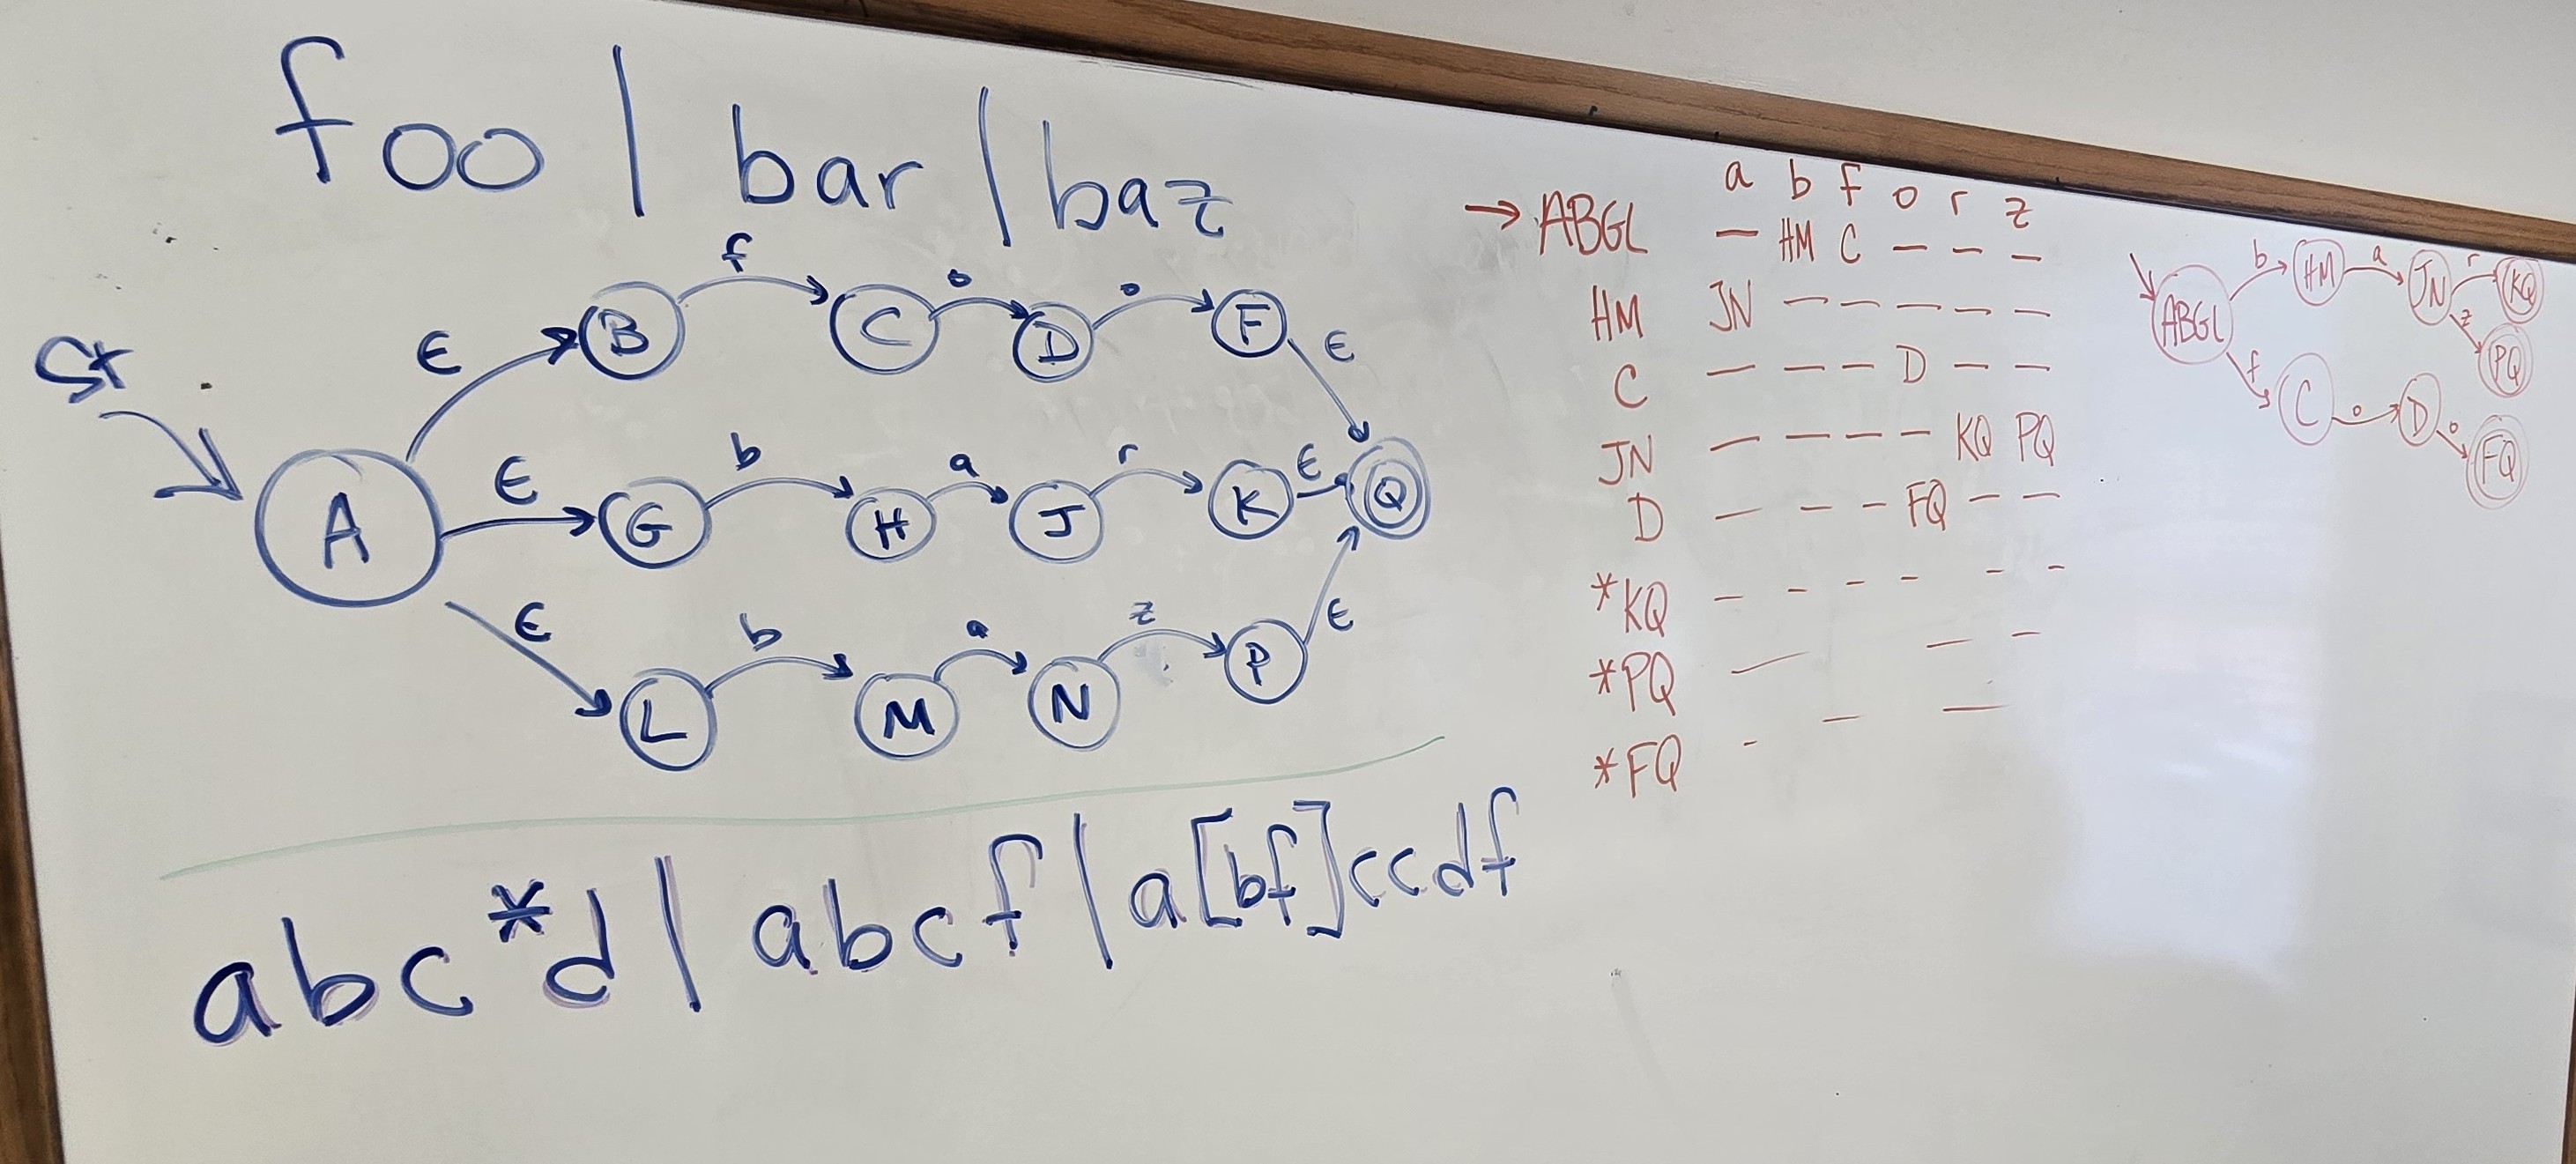 foo | bar | baz
St
A
ϵ
B
f
C
o
D
o
F
ϵ
ϵ
G
b
H
a
J
r
K
ϵ
Q
ϵ
L
b
M
a
N
z
P
ϵ
abc*d | abcf | a[bf]ccdf
a b f o r z
→ ABGL — HM C — — —
HM JN — — — — —
C — — — D — —
JN — — — — KQ PQ
D — — — FQ — —
*KQ — — — — — —
*PQ — — —
*FQ - — —
ABGL
b
HM
a
JN
r
KQ
z
PQ
f
C
o
D
o
FQ